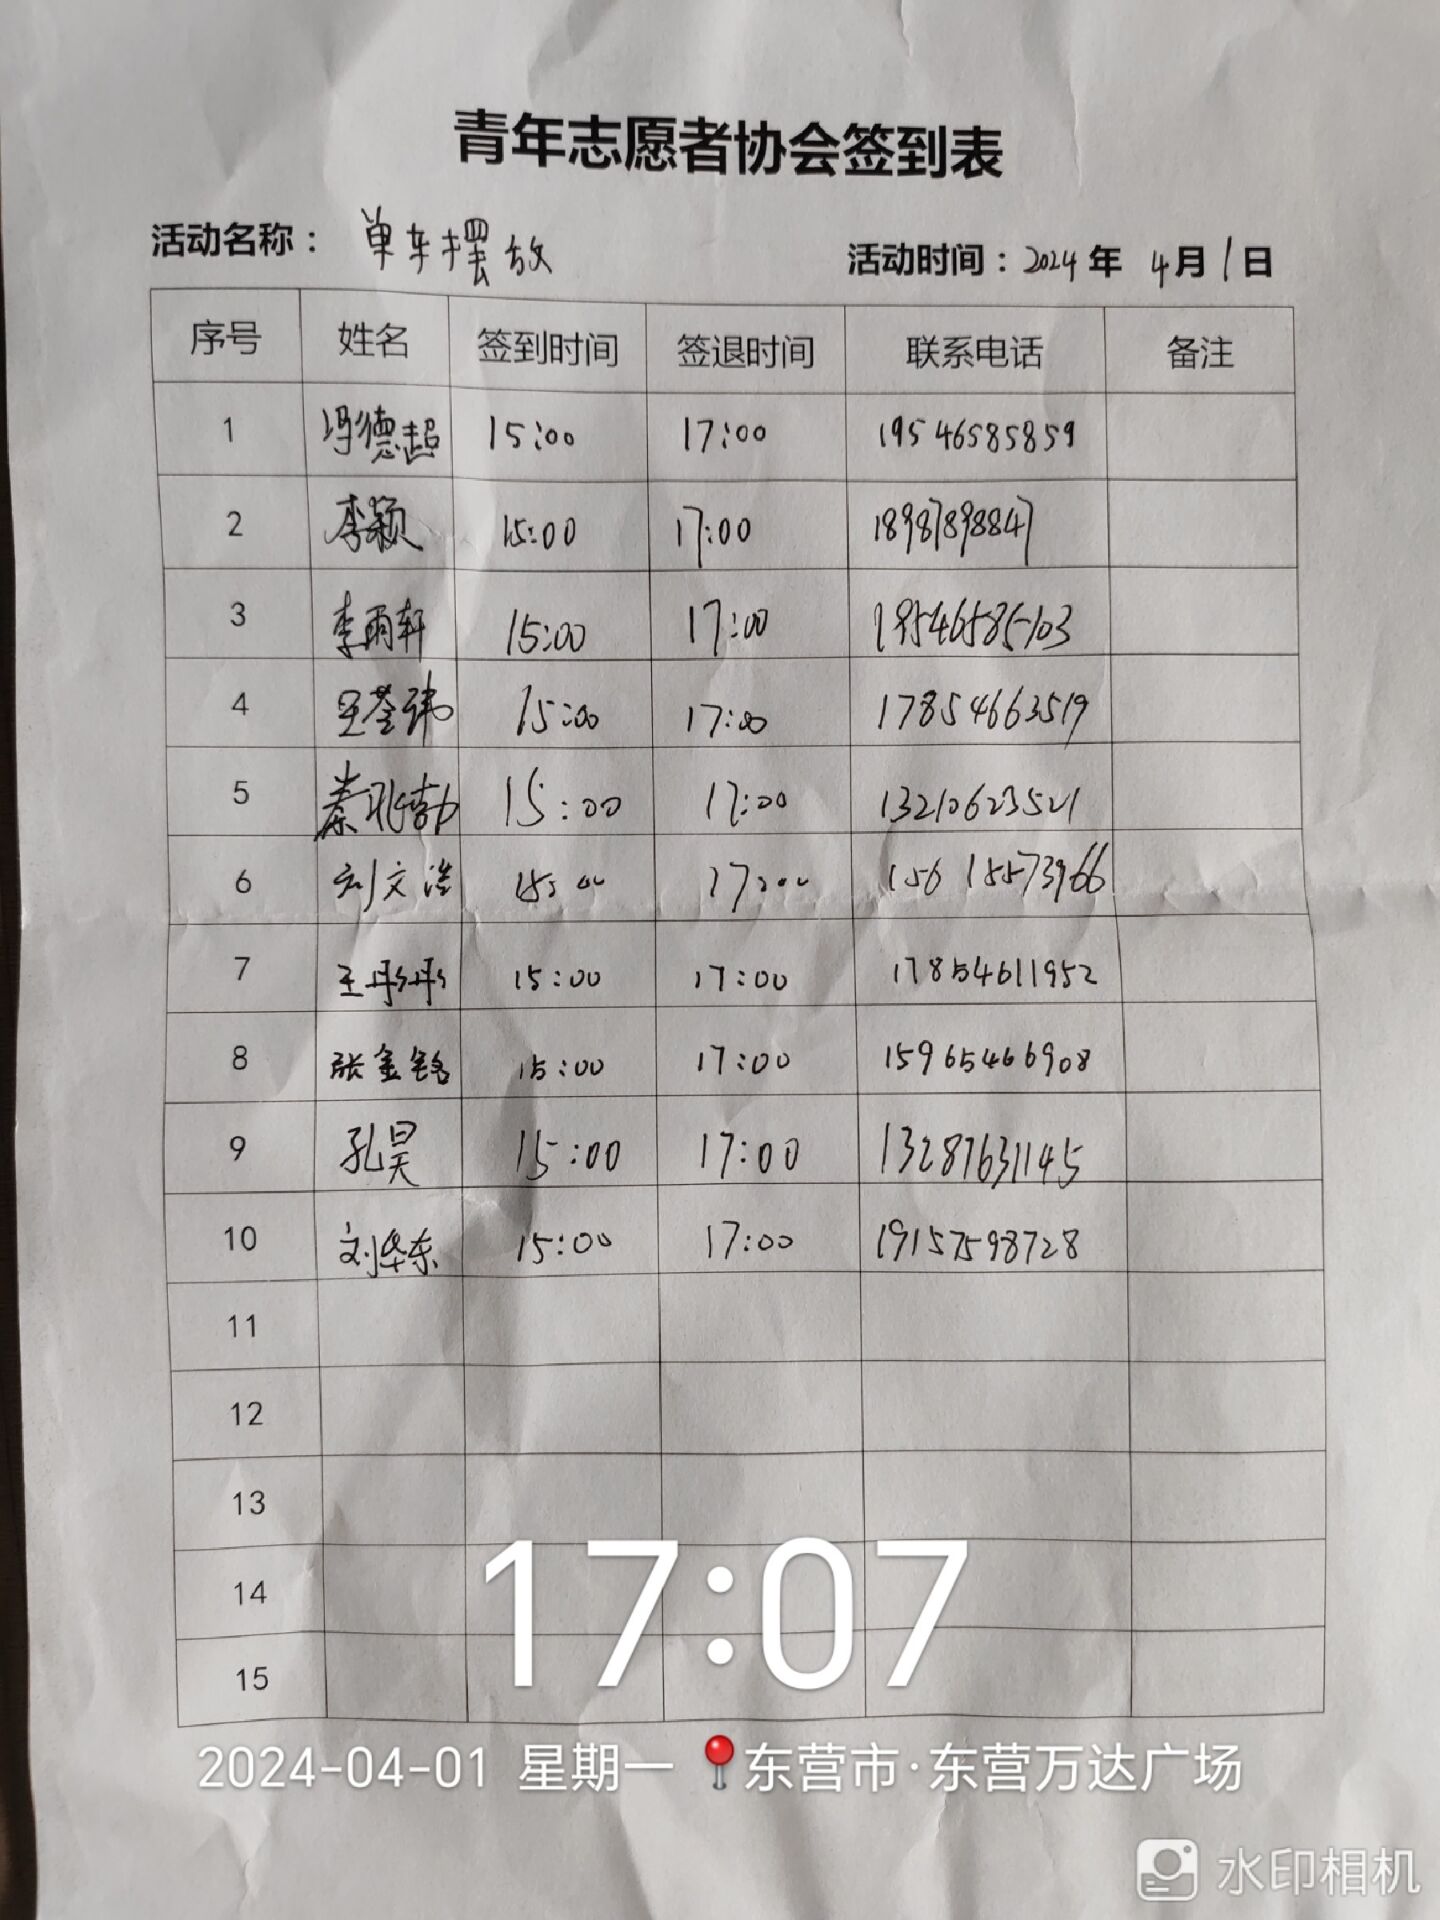 青年志愿者协会签到表
活动名称：单车摆放 活动时间：2024年 4月1日
序号 姓名 签到时间 签退时间 联系电话 备注
1 冯德超 15:00 17:00 19546585859
2 李颖 15:00 17:00 18987898847
3 李雨轩 15:00 17:00 19546585103
4 15:00 17:00 17854663519
5 秦兆勃 15:00 17:00 13210623521
6 刘文浩 15:00 17:00 15615573966
7 王彤彤 15:00 17:00 17854611952
8 张金铭 15:00 17:00 15965466908
9 孔昊 15:00 17:00 13287631145
10 刘华东 15:00 17:00 19157598728
11
12
13
14
15
17:07
2024-04-01 星期一 东营市·东营万达广场
水印相机